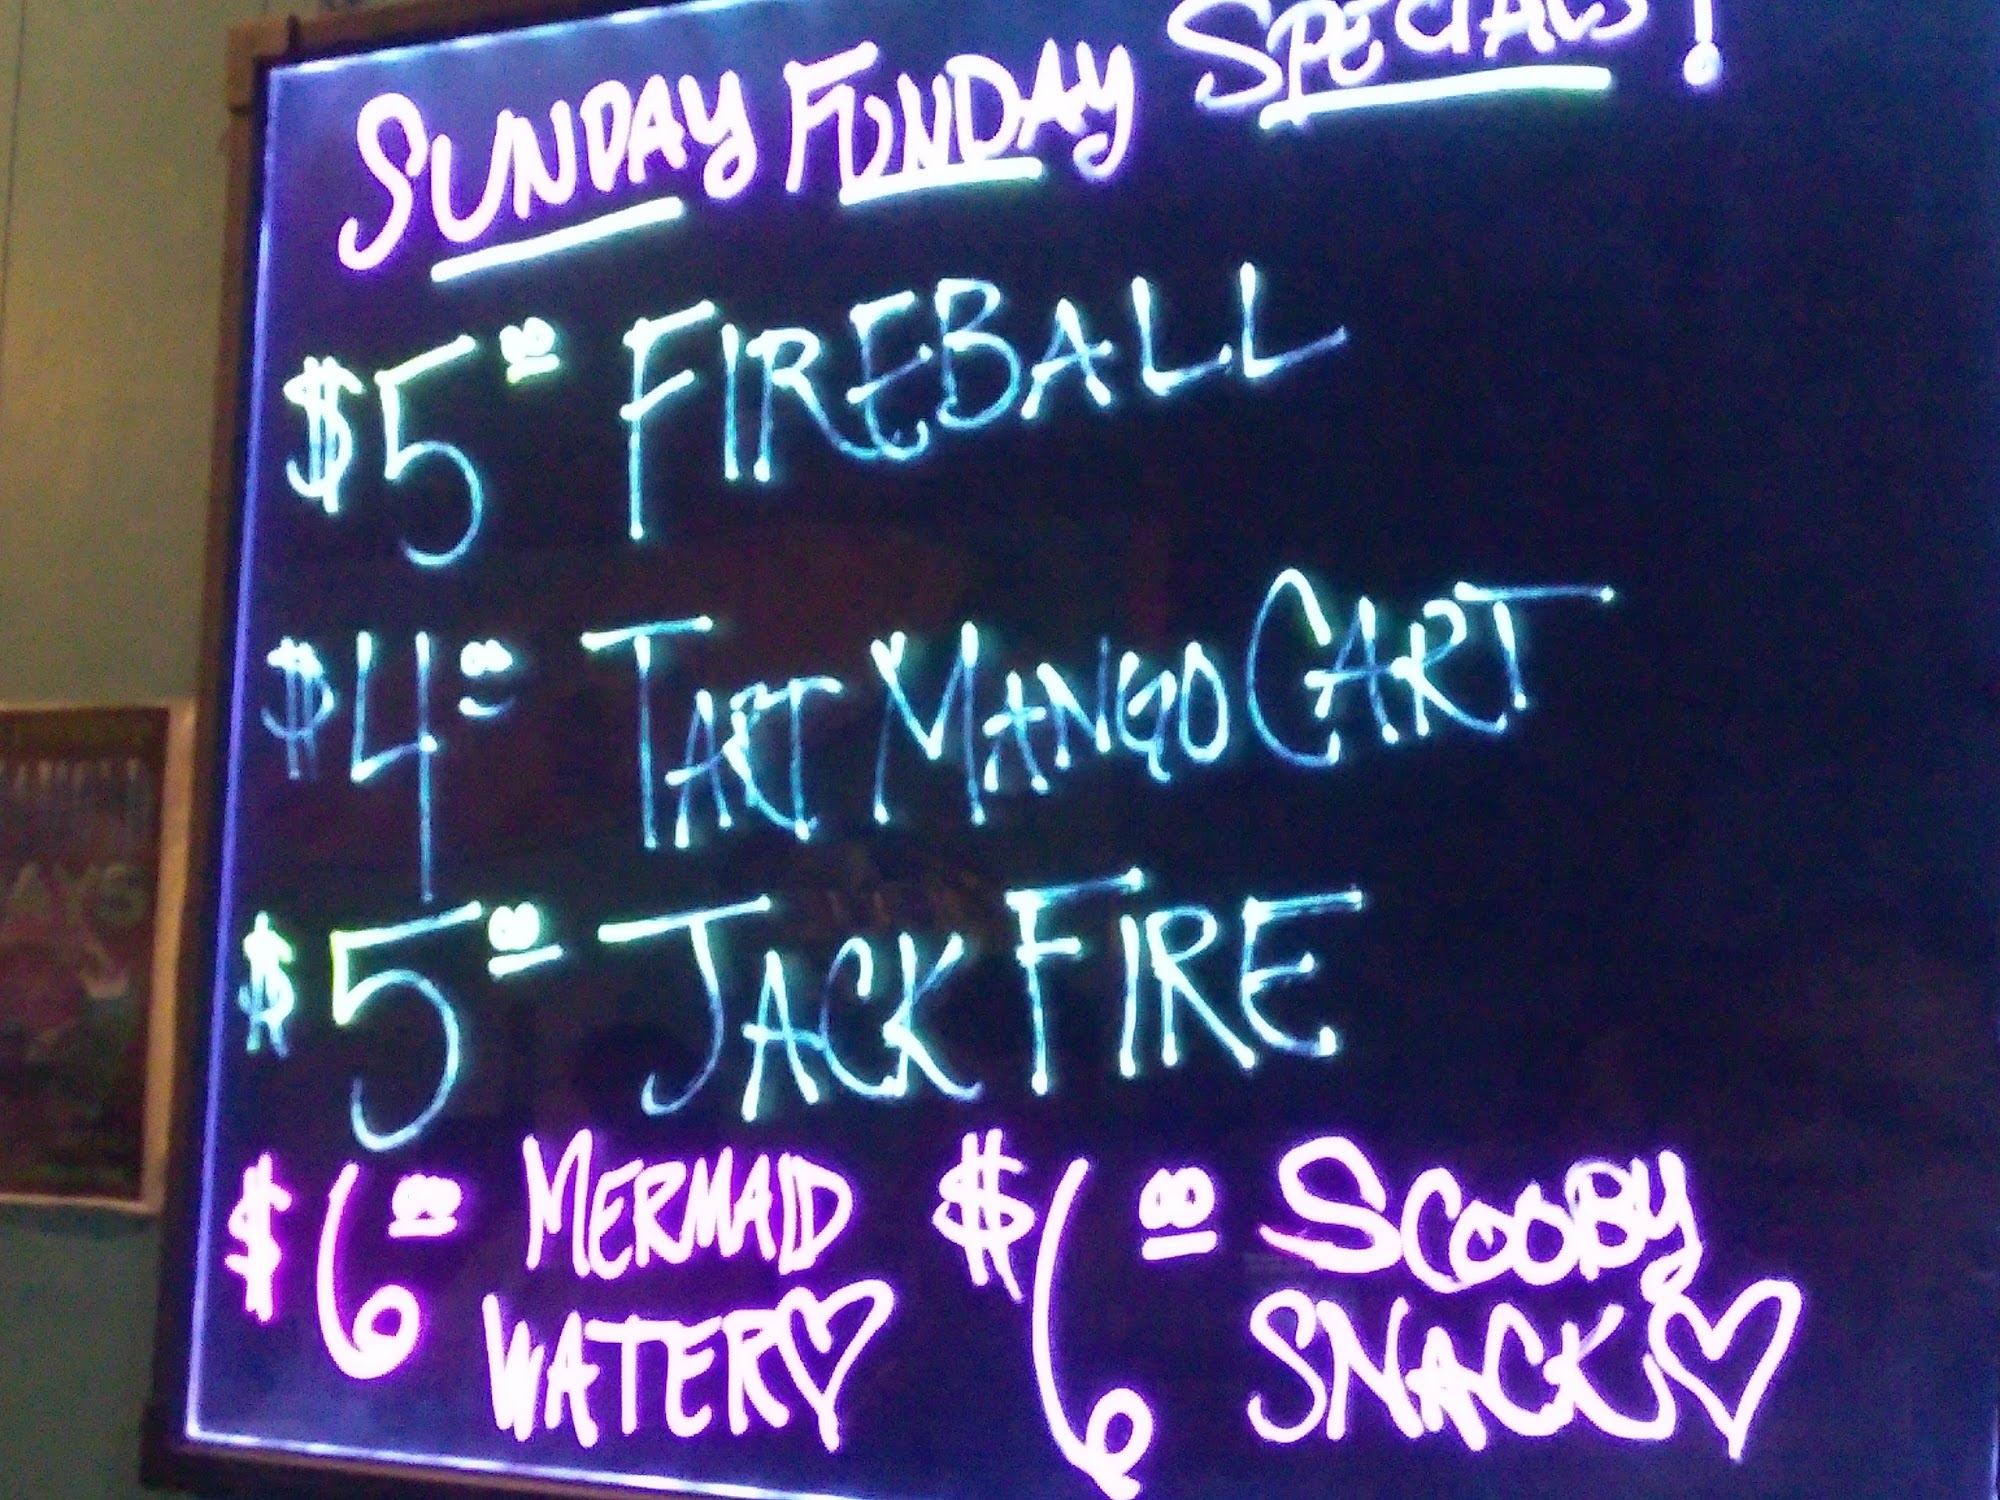 SUNDAY FUNDAY SPECIALS!
$5.00 FIREBALL
$4.00 TART MANGO CART
$5.00 JACK FIRE
$6.00 MERMAID WATER♡
$6.00 SCOOBY SNACK♡
AYS